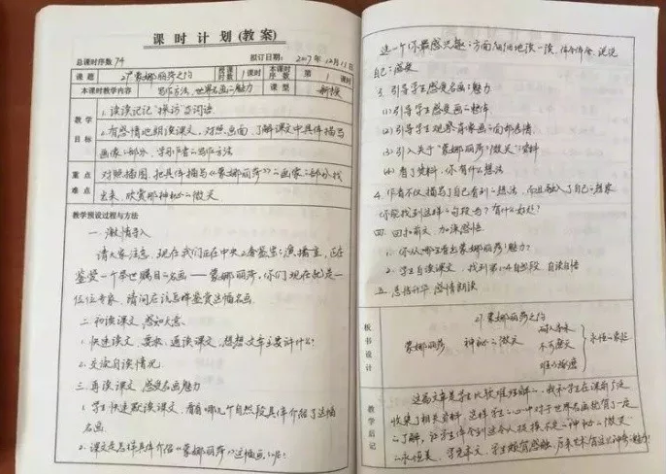 课时计划(教案)
总课时序数 74 拟订日期：2017年12月15日
课题 27蒙娜丽莎之约 课时序数 1课时 本课时序数 第1课时
本课时教学内容 写作方法，世界名画的魅力 课型 新授
教学目标
1. 读读记记"探访"等词语
2. 有感情地朗读课文，对照画面，了解课文中具体描写
画像的部分，学习作者的写作方法
重点难点
对照插图，把具体描写《蒙娜丽莎》的画像的部分找
出来，欣赏那神秘的微笑
教学预设过程与方法
一、激情导入
请大家注意，现在我们正在中央
鉴赏一个举世瞩目的名画——蒙娜丽莎，你们现在就是一
位位专家，请问应该怎样鉴赏这幅名画
二、初读课文，感知大意
1. 快速读文，要求：通读课文，想想文章主要讲什么？
2. 交流自读情况
三、再读课文，感受名画魅力
1. 学生快速默读课文，看看哪几个自然段具体介绍了这幅
名画
2. 课文是怎样具体介绍《蒙娜丽莎》这幅画的？
选一个你最感兴趣的方面细细地读一读，体会体会，说说
自己的感受
3. 引导学生感受名画的魅力
(1) 引导学生感受画的整体
(2) 引导学生观察肖像画的面部表情
(3) 引入关于"蒙娜丽莎的微笑"资料
(4) 看了资料，你有什么想法
4. 作者不仅描写了自己看到的想法，而且融入了自己的想象
你能找到这样的句段吗？有什么好处？
四、回扣前文，加深感悟
1. 你从哪里看出蒙娜丽莎的魅力？
2. 学生自读课文，找到第 自然段，自读自悟
五、总结升华，感情朗读
板书设计
27 蒙娜丽莎之约
蒙娜丽莎 神秘的微笑
耐人寻味
不可磨灭
难以捉摸
永恒的
教学后记
这篇文章是学生比较难理解的，我和学生在课前先
收集了相关资料，这样学生心中对于世界名画就有了一定
的了解，